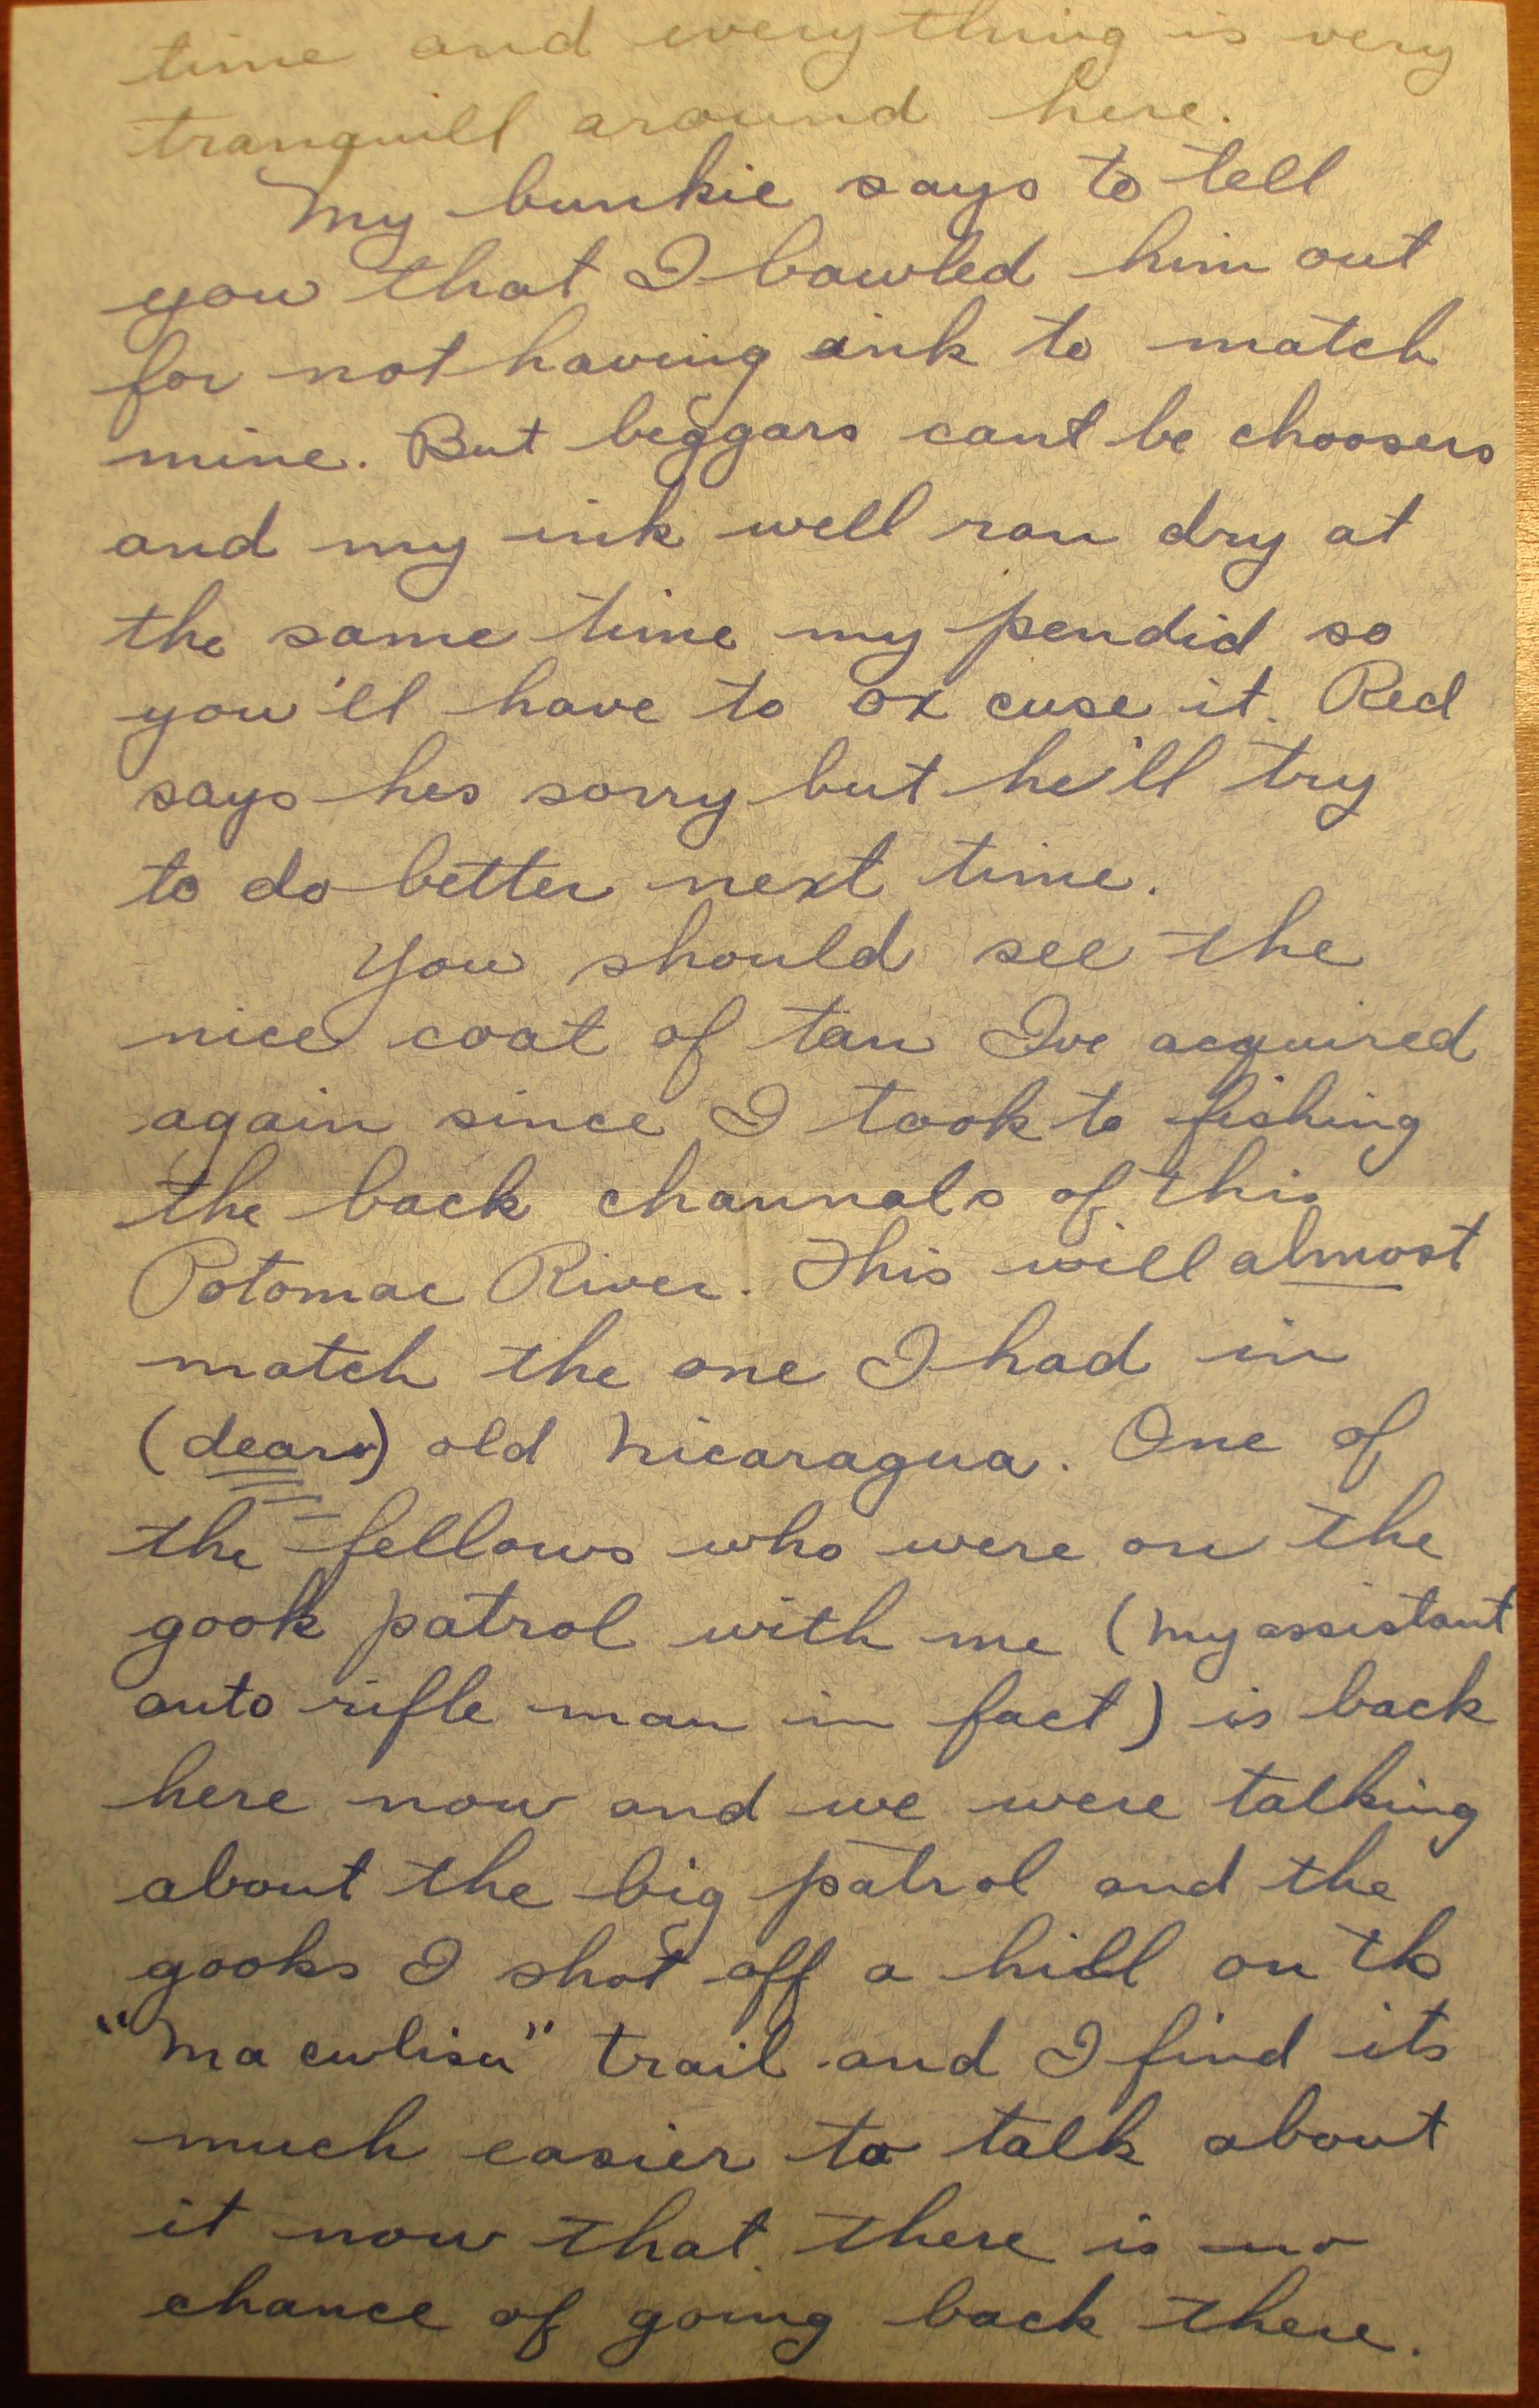 time and everything is very
tranquill around here.
My bunkie says to tell
you that I bawled him out
for not having ink to match
mine. But beggars cant be choosers
and my ink well ran dry at
the same time my pen did so
you'll have to ox cuse it. Red
says hes sorry but he'll try
to do better next time.
You should see the
nice coat of tan Ive acquired
again since I took to fishing
the back channals of this
Potomac River. This will almost
match the one I had in
(dear) old Nicaragua. One of
the fellows who were on the
gook patrol with me (my assistant
auto rifle man in fact) is back
here now and we were talking
about the big patrol and the
gooks I shot off a hill on the
"Ma culisu" trail and I find its
much easier to talk about
it now that there is no
chance of going back there.